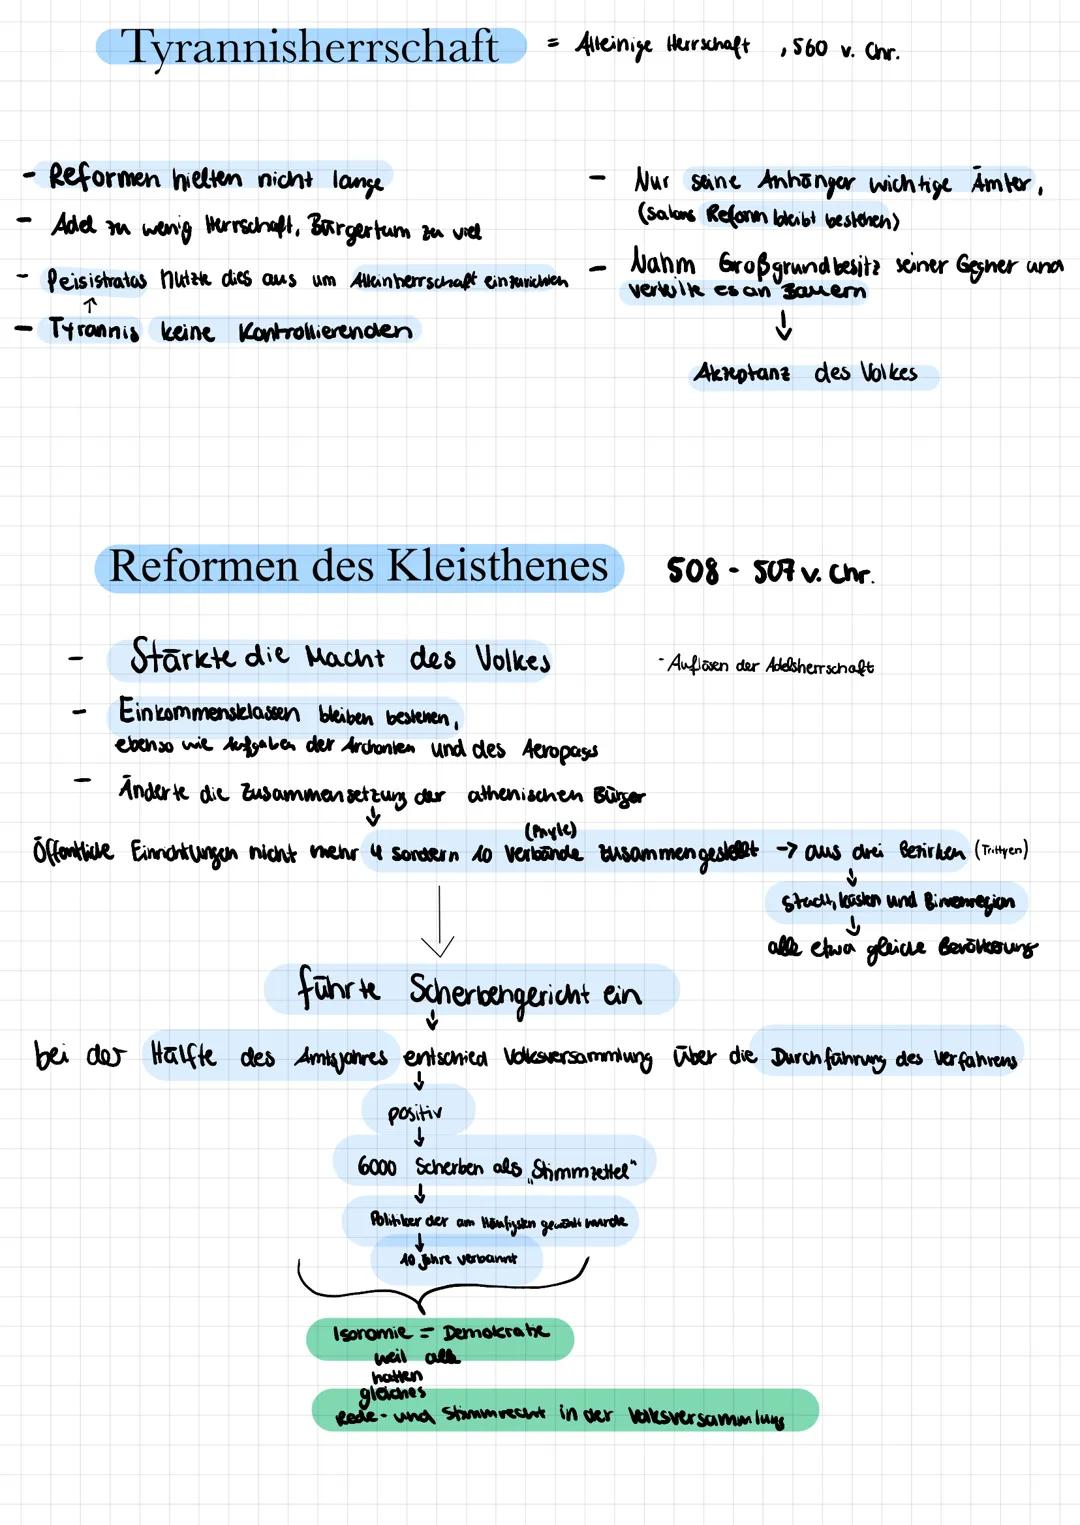 Tyrannisherrschaft = Alleinige Herrschaft , 560 v. Chr.
- Reformen hielten nicht lange
- Adel zu wenig Herrschaft, Bürgertum zu viel
- Peisistratos nutzte dies aus um Alleinherrschaft einzurichten
↑
- Tyrannis keine Kontrollierenden
- Nur seine Anhänger wichtige Ämter,
(Solons Reform bleibt bestehen)
- Nahm Großgrundbesitz seiner Gegner und
verteilte es an Bauern
↓
Akzeptanz des Volkes
Reformen des Kleisthenes 508 - 507 v. Chr.
- Stärkte die Macht des Volkes
- Auflösen der Adelsherrschaft
- Einkommensklassen bleiben bestehen,
ebenso wie Aufgaben der Archonten und des Aeropags
- Änderte die Zusammensetzung der athenischen Bürger
↓
(Phyle)
Öffentliche Einrichtungen nicht mehr 4 sondern 10 Verbände zusammengestellt -> aus drei Bezirken (Trittyen)
↓
Stadt, Küsten und Binnenregion
↓
alle etwa gleiche Bevölkerung
↓
führte Scherbengericht ein
↓
bei der Hälfte des Amtsjahres entschied Volksversammlung über die Durchführung des Verfahrens
↓
positiv
↓
6000 Scherben als „Stimmzettel"
↓
Politiker der am Häufigsten gewählt wurde
↓
10 Jahre verbannt
Isonomie = Demokratie
weil alle
hatten
gleiches
Rede- und Stimmrecht in der Volksversammlung